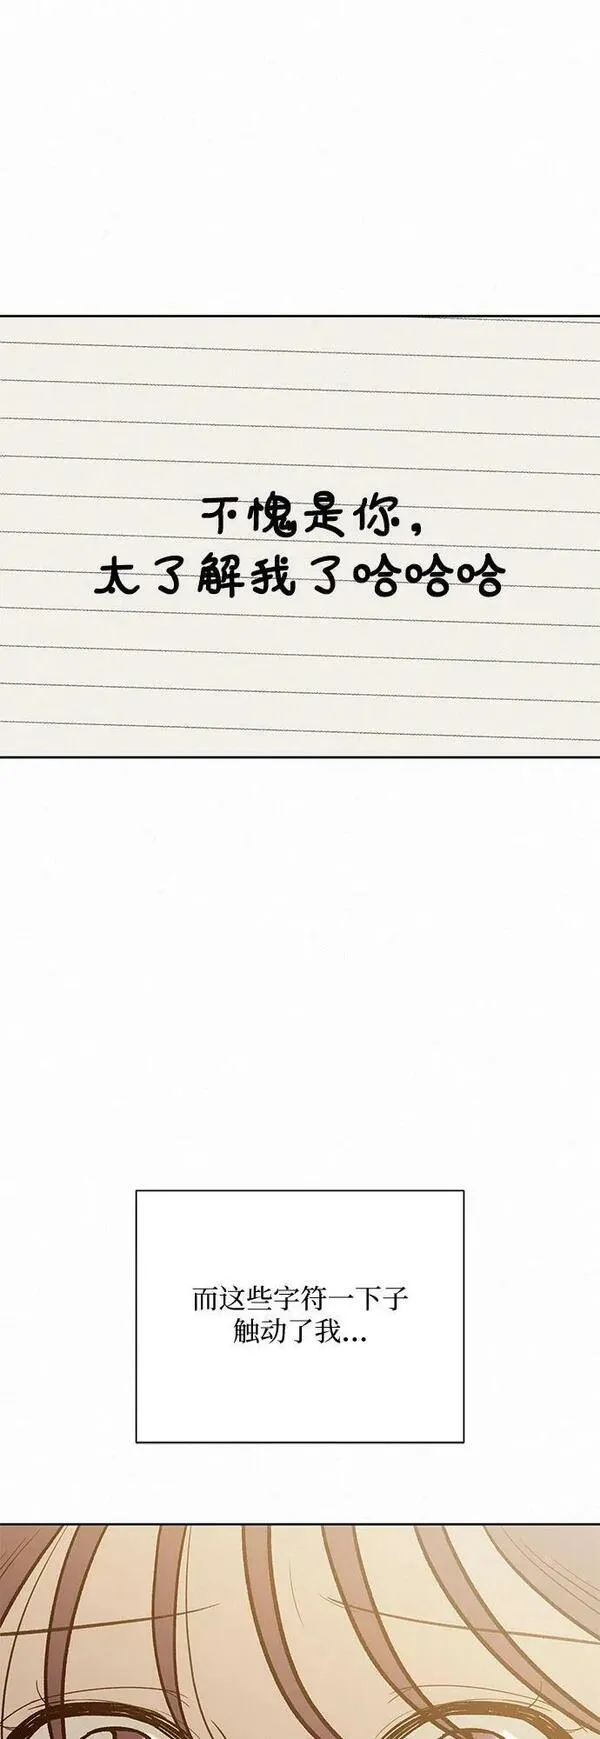 不愧是你,
太了解我了哈哈哈
而这些字符一下子
触动了我...